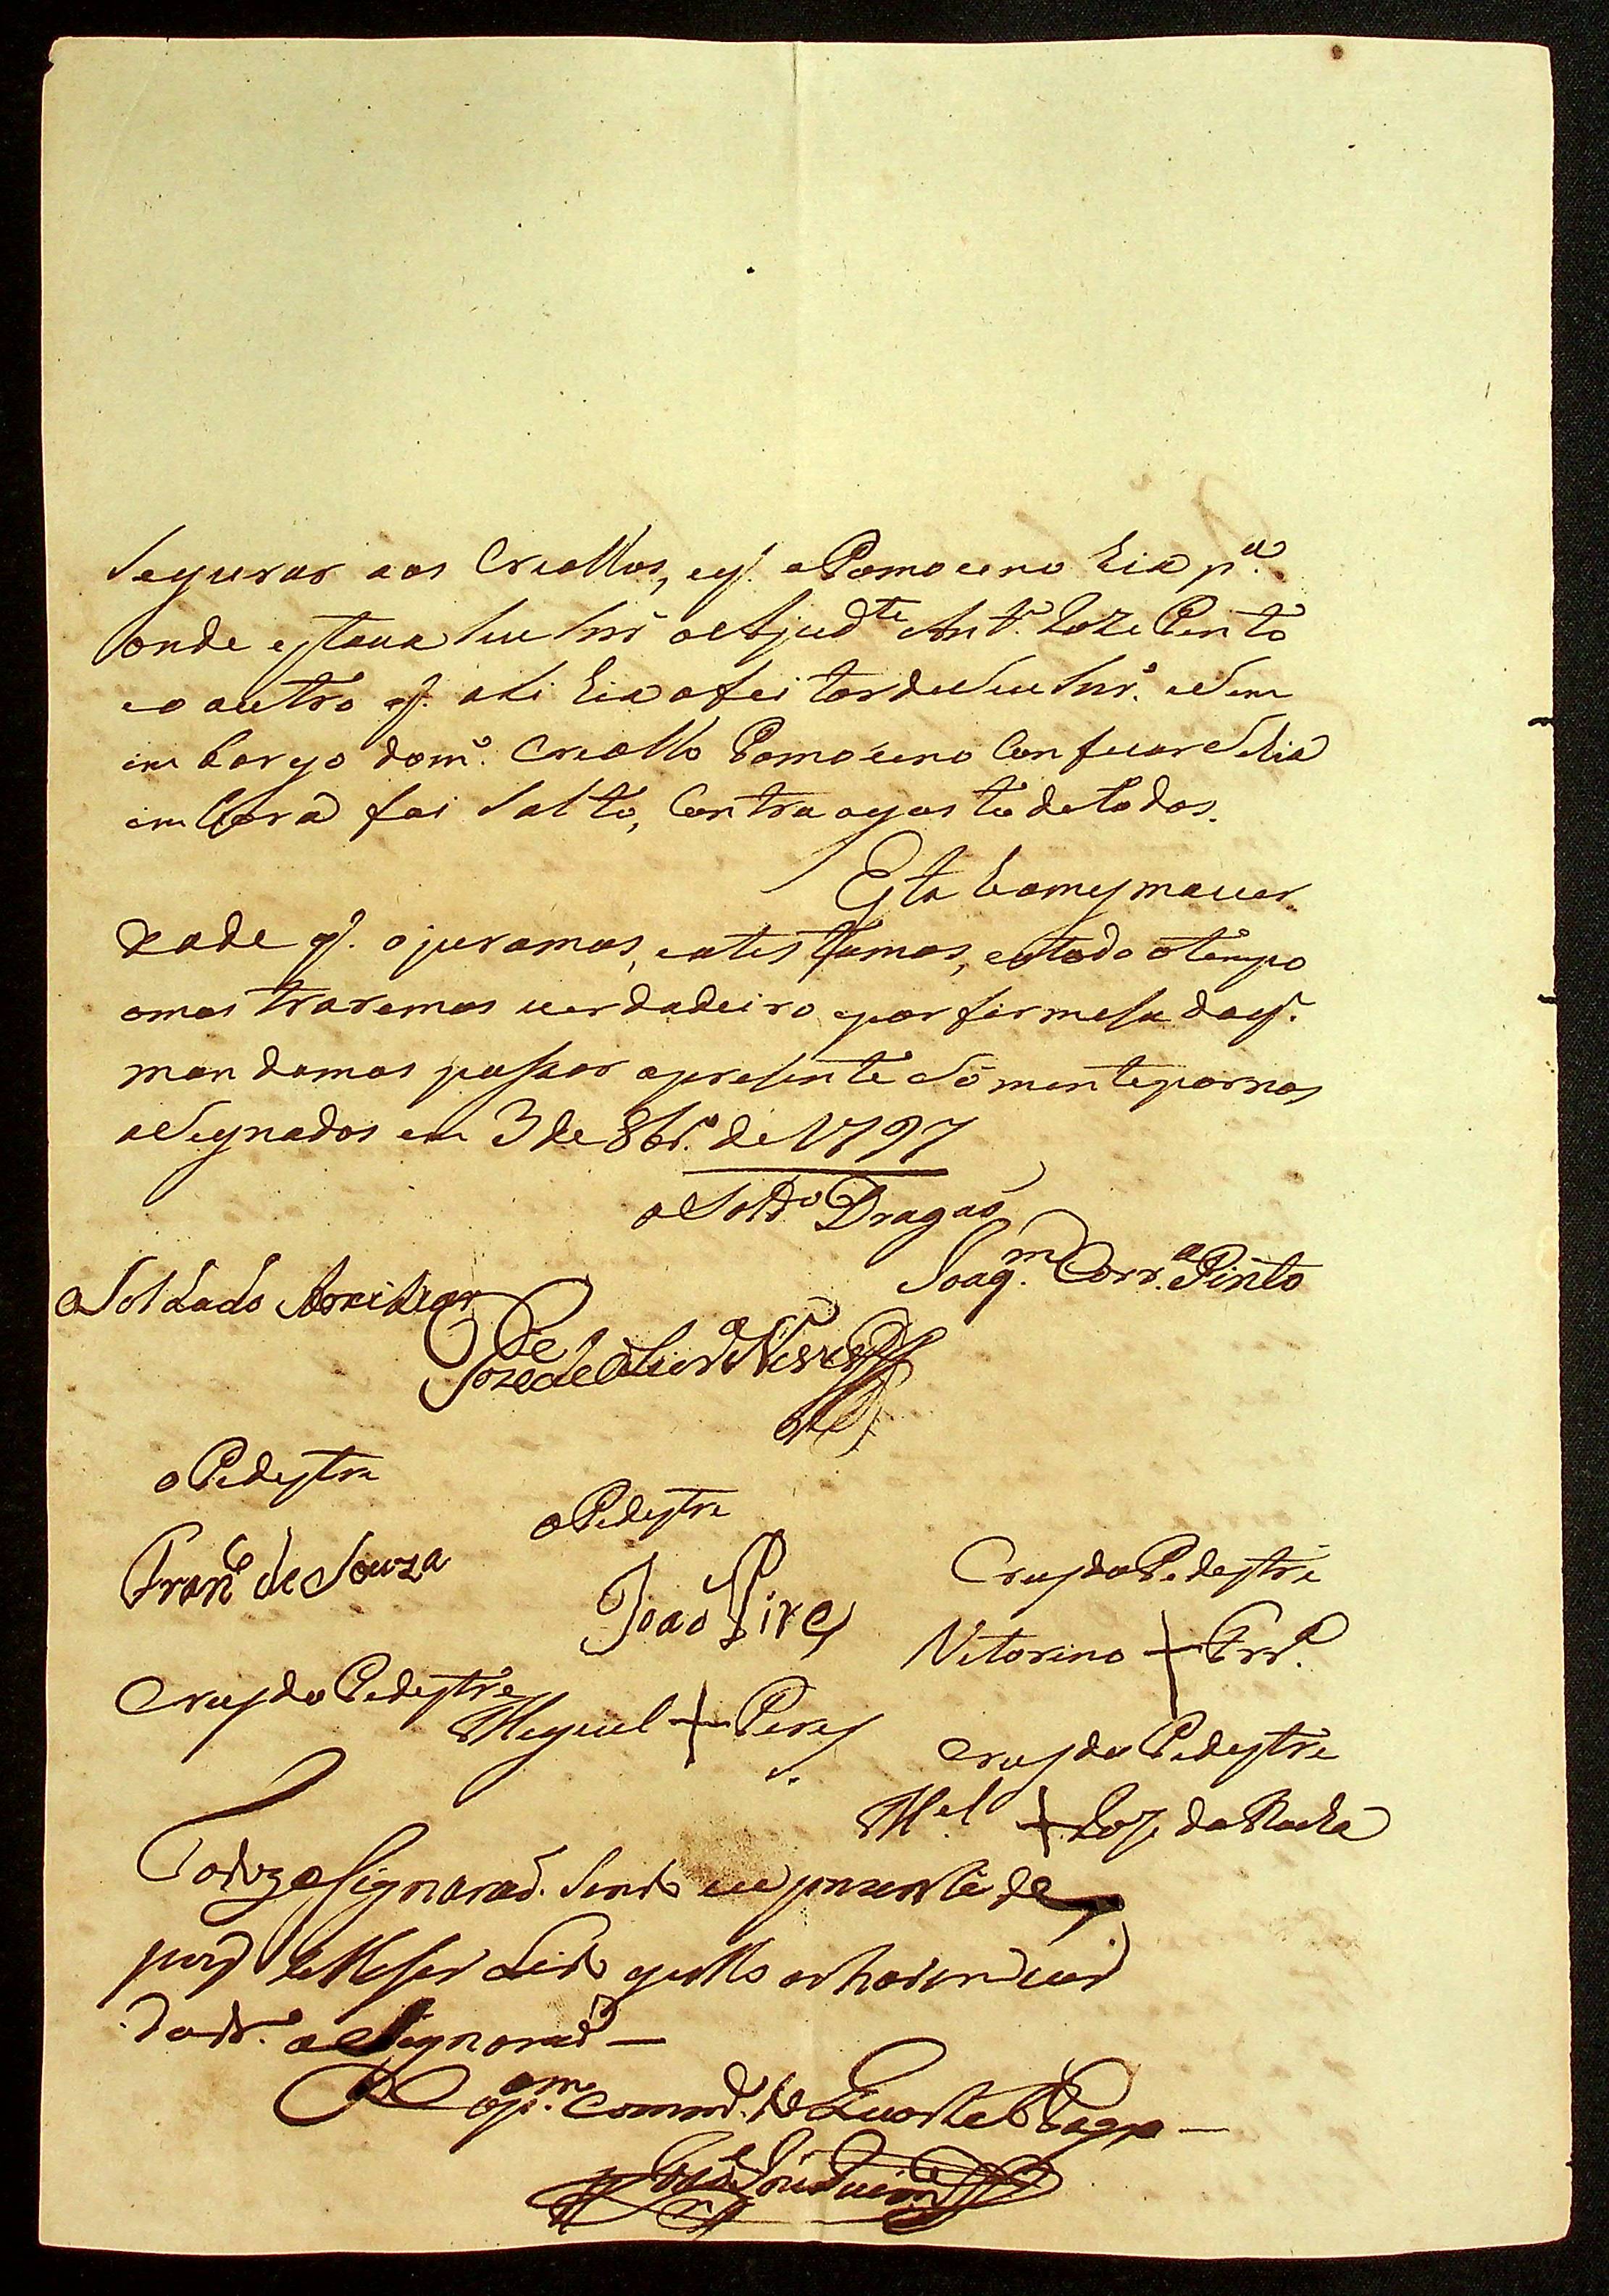 Segurar aos Creollos, e q. o Pomoceno hia p.ª
onde estaua seu Snr̃ o Ajud.te Ant.º Joze Pinto
e o outro q. ahi hia o feitor de Seu Snr.º e Sem
in bargo do m.º Creollo Pomoceno Confesar Se hia
imbora foi Solto, Contra o gosto de todos.
Esta he a mesma uer
dade q. o juramos, e atestamos, e a todo o tempo
o mostraremos uerdadeiro e por firmesa do q.
mandamos passar a presente Só mente por nos
aSignados em 3 de 8br.º de 1797
o Sold.º Dragaõ
Joaq.m Corr.ª Pinto
o Soldado Auxiliar
Joze de
o Pedestre
Fran.co de Souza
o Pedestre
João Pires
Crus do Pedestre
Vitorino + Frr.ª
Crus do Pedestre
Miguel + Peres
Crus do Pedestre
M.el + Joze da Rocha
Todoz aSignaraõ. Sendo eu prezente de
pois de lhe Ser Lido q elles acharem uer
dadr.º aSignaraõ —
Cap.m Comm.d do Quartel